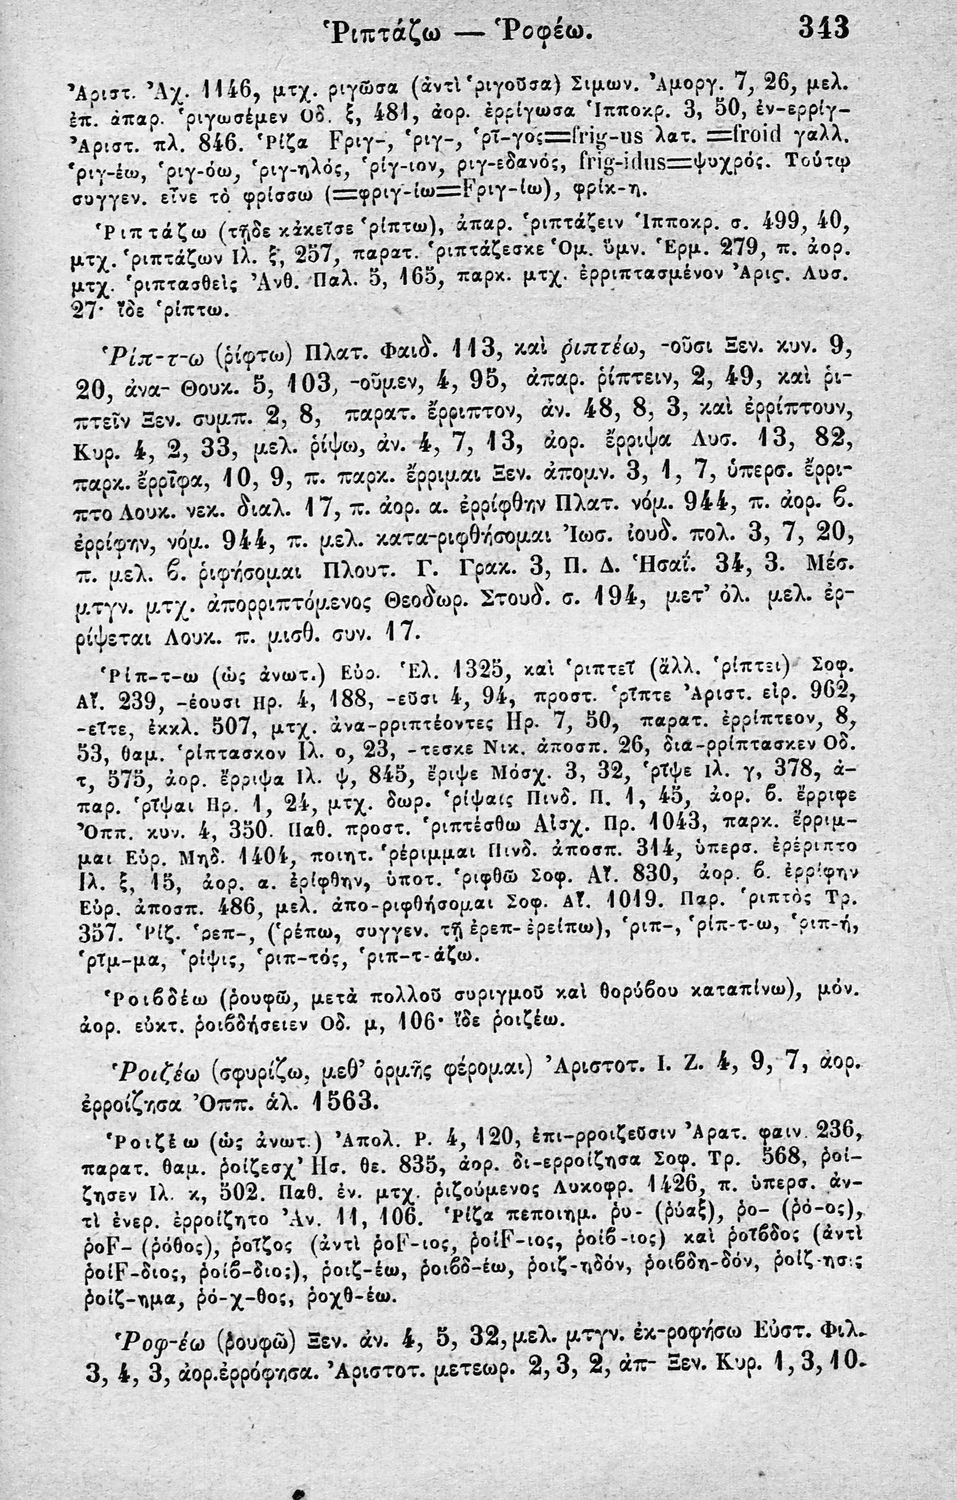 Ῥιπτάζω — Ῥοφέω. 343
Ἀριστ. Ἀχ. 1146, μτχ. ριγῶσα (ἀντὶ ῥιγοῦσα) Σιμων. Ἀμοργ. 7, 26, μελ.
ἐπ. ἀπαρ. ῥιγωσέμεν Ὀδ. ξ, 481, ἀορ. ἐρρίγωσα Ἱπποκρ. 3, 50, ἐν-ερρίγ-
Ἀριστ. πλ. 846. Ῥίζα Fριγ-, ῥιγ-, ῥῖ-γος=frig-us λατ. =froid γαλλ.
ῥιγ-έω, ῥιγ-όω, ῥιγ-ηλός, ῥίγ-ιον, ριγ-εδανός, frig-idus=ψυχρός. Τούτῳ
συγγεν. εἶνε τὸ φρίσσω (=φριγ-ίω=Fριγ-ίω), φρίκ-η.
Ῥιπτάζω (τῇδε κἀκεῖσε ῥίπτω), ἀπαρ. ῥιπτάζειν Ἱπποκρ. σ. 499, 40,
μτχ. ῥιπτάζων Ιλ. ξ, 257, παρατ. ῥιπτάζεσκε Ὁμ. ὕμν. Ἑρμ. 279, π. ἀορ.
μτχ. ῥιπτασθεὶς Ἀνθ. Παλ. 5, 165, παρκ. μτχ. ἐρριπτασμένον Ἀρις. Λυσ.
27· ἴδε ῥίπτω.
Ῥίπ-τ-ω (ῥίφτω) Πλατ. Φαιδ. 113, καὶ ῥιπτέω, -οῦσι Ξεν. κυν. 9,
20, ἀνα- Θουκ. 5, 103, -οῦμεν, 4, 95, ἀπαρ. ῥίπτειν, 2, 49, καὶ ῥι-
πτεῖν Ξεν. συμπ. 2, 8, παρατ. ἔρριπτον, ἀν. 48, 8, 3, καὶ ἐρρίπτουν,
Κυρ. 4, 2, 33, μελ. ῥίψω, ἀν. 4, 7, 13, ἀορ. ἔρριψα Λυσ. 13, 82,
παρκ. ἔρρῖφα, 10, 9, π. παρκ. ἔρριμαι Ξεν. ἀπομν. 3, 1, 7, ὑπερσ. ἔρρι-
πτο Λουκ. νεκ. διαλ. 17, π. ἀορ. α. ἐρρίφθην Πλατ. νόμ. 944, π. ἀορ. β.
ἐρρίφην, νόμ. 944, π. μελ. κατα-ριφθήσομαι Ἰωσ. ἰουδ. πολ. 3, 7, 20,
π. μελ. β. ῥιφήσομαι Πλουτ. Γ. Γρακ. 3, Π. Δ. Ἡσαΐ. 34, 3. Μέσ.
μτγν. μτχ. ἀπορριπτόμενος Θεοδωρ. Στουδ. σ. 194, μετ’ ὀλ. μελ. ἐρ-
ρίψεται Λουκ. π. μισθ. συν. 17.
Ῥίπ-τ-ω (ὡς ἀνωτ.) Εὐρ. Ἑλ. 1325, καὶ ῥιπτεῖ (ἄλλ. ῥίπτει) Σοφ.
Αἴ. 239, -έουσι Ηρ. 4, 188, -εῦσι 4, 94, προστ. ῥῖπτε Ἀριστ. εἰρ. 962,
-εῖτε, ἐκκλ. 507, μτχ. ἀνα-ρριπτέοντες Ηρ. 7, 50, παρατ. ἐρρίπτεον, 8,
53, θαμ. ῥίπτασκον Ιλ. ο, 23, -τεσκε Νικ. ἀποσπ. 26, δια-ρρίπτασκεν Οδ.
τ, 575, ἀορ. ἔρριψα Ιλ. ψ, 845, ἔριψε Μόσχ. 3, 32, ῥῖψε ιλ. γ, 378, ἀ-
παρ. ῥῖψαι Ηρ. 1, 24, μτχ. δωρ. ῥίψαις Πινδ. Π. 1, 45, ἀορ. β. ἔρριφε
Ὀππ. κυν. 4, 350. Παθ. προστ. ῥιπτέσθω Αἰσχ. Πρ. 1043, παρκ. ἔρριμ-
μαι Εὐρ. Μηδ. 1404, ποιητ. ῥέριμμαι Πινδ. ἀποσπ. 314, ὑπερσ. ἐρέριπτο
Ιλ. ξ, 15, ἀορ. α. ἐρίφθην, ὑποτ. ῥιφθῶ Σοφ. Αἴ. 830, ἀορ. β. ἐρρίφην
Εὐρ. ἀποσπ. 486, μελ. ἀπο-ριφθήσομαι Σοφ. Αἴ. 1019. Παρ. ῥιπτὸς Τρ.
357. Ῥίζ. ῥεπ-, (ῥέπω, συγγεν. τῇ ἐρεπ-ἐρείπω), ῥιπ-, ῥίπ-τ-ω, ῥιπ-ή,
ῥῖμ-μα, ῥίψις, ῥιπ-τός, ῥιπ-τ-άζω.
Ῥοιβδέω (ῥουφῶ, μετὰ πολλοῦ συριγμοῦ καὶ θορύβου καταπίνω), μόν.
ἀορ. εὐκτ. ῥοιβδήσειεν Οδ. μ, 106· ἴδε ῥοιζέω.
Ῥοιζέω (σφυρίζω, μεθ’ ὁρμῆς φέρομαι) Ἀριστοτ. Ι. Ζ. 4, 9, 7, ἀορ.
ἐρροίζησα Ὀππ. ἁλ. 1563.
Ῥοιζέω (ὡς ἀνωτ.) Ἀπολ. Ρ. 4, 120, ἐπι-ρροιζεῦσιν Ἀρατ. φαιν. 236,
παρατ. θαμ. ῥοίζεσχ’ Ησ. θε. 835, ἀορ. δι-ερροίζησα Σοφ. Τρ. 568, ῥοί-
ζησεν Ιλ. κ, 502. Παθ. ἐν. μτχ. ῥιζούμενος Λυκοφρ. 1426, π. ὑπερσ. ἀν-
τὶ ἐνερ. ἐρροίζητο Ἀν. 11, 106. Ῥίζα πεποιημ. ῥυ- (ῥύαξ), ῥο- (ῥό-ος),
ῥοF- (ῥόθος), ῥοῖζος (ἀντὶ ῥοF-ιος, ῥοίF-ιος, ῥοίβ-ιος) καὶ ῥοῖβδος (ἀντὶ
ῥοίF-διος, ῥοίβ-διος), ῥοιζ-έω, ῥοιβδ-έω, ῥοιζ-ηδόν, ῥοιβδη-δόν, ῥοίζ-ησις
ῥοίζ-ημα, ῥό-χ-θος, ῥοχθ-έω.
Ῥοφ-έω (ῥουφῶ) Ξεν. ἀν. 4, 5, 32, μελ. μτγν. ἐκ-ροφήσω Εὐστ. Φιλ.
3, 4, 3, ἀορ. ἐρρόφησα. Ἀριστοτ. μετεωρ. 2, 3, 2, ἀπ- Ξεν. Κυρ. 1, 3, 10.